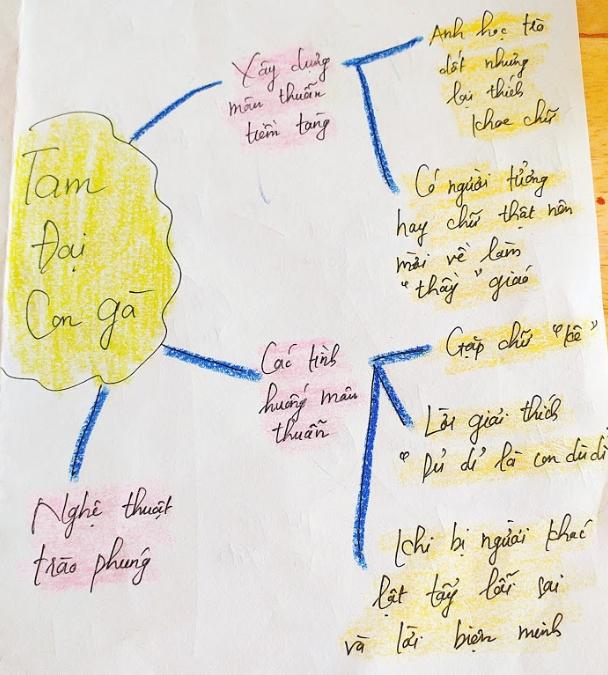 Tam
Đại
Con gà
Xây dựng
mâu thuẫn
tiềm tàng
Anh học trò
dốt nhưng
lại thích
khoe chữ
Có người tưởng
hay chữ thật nên
mời về làm
"thầy" giáo
Các tình
huống mâu
thuẫn
Gặp chữ "kê"
Lời giải thích
"Dủ dỉ" là con dù dì
Khi bị người khác
lật tẩy lỗi sai
và lời biện minh
Nghệ thuật
trào phúng